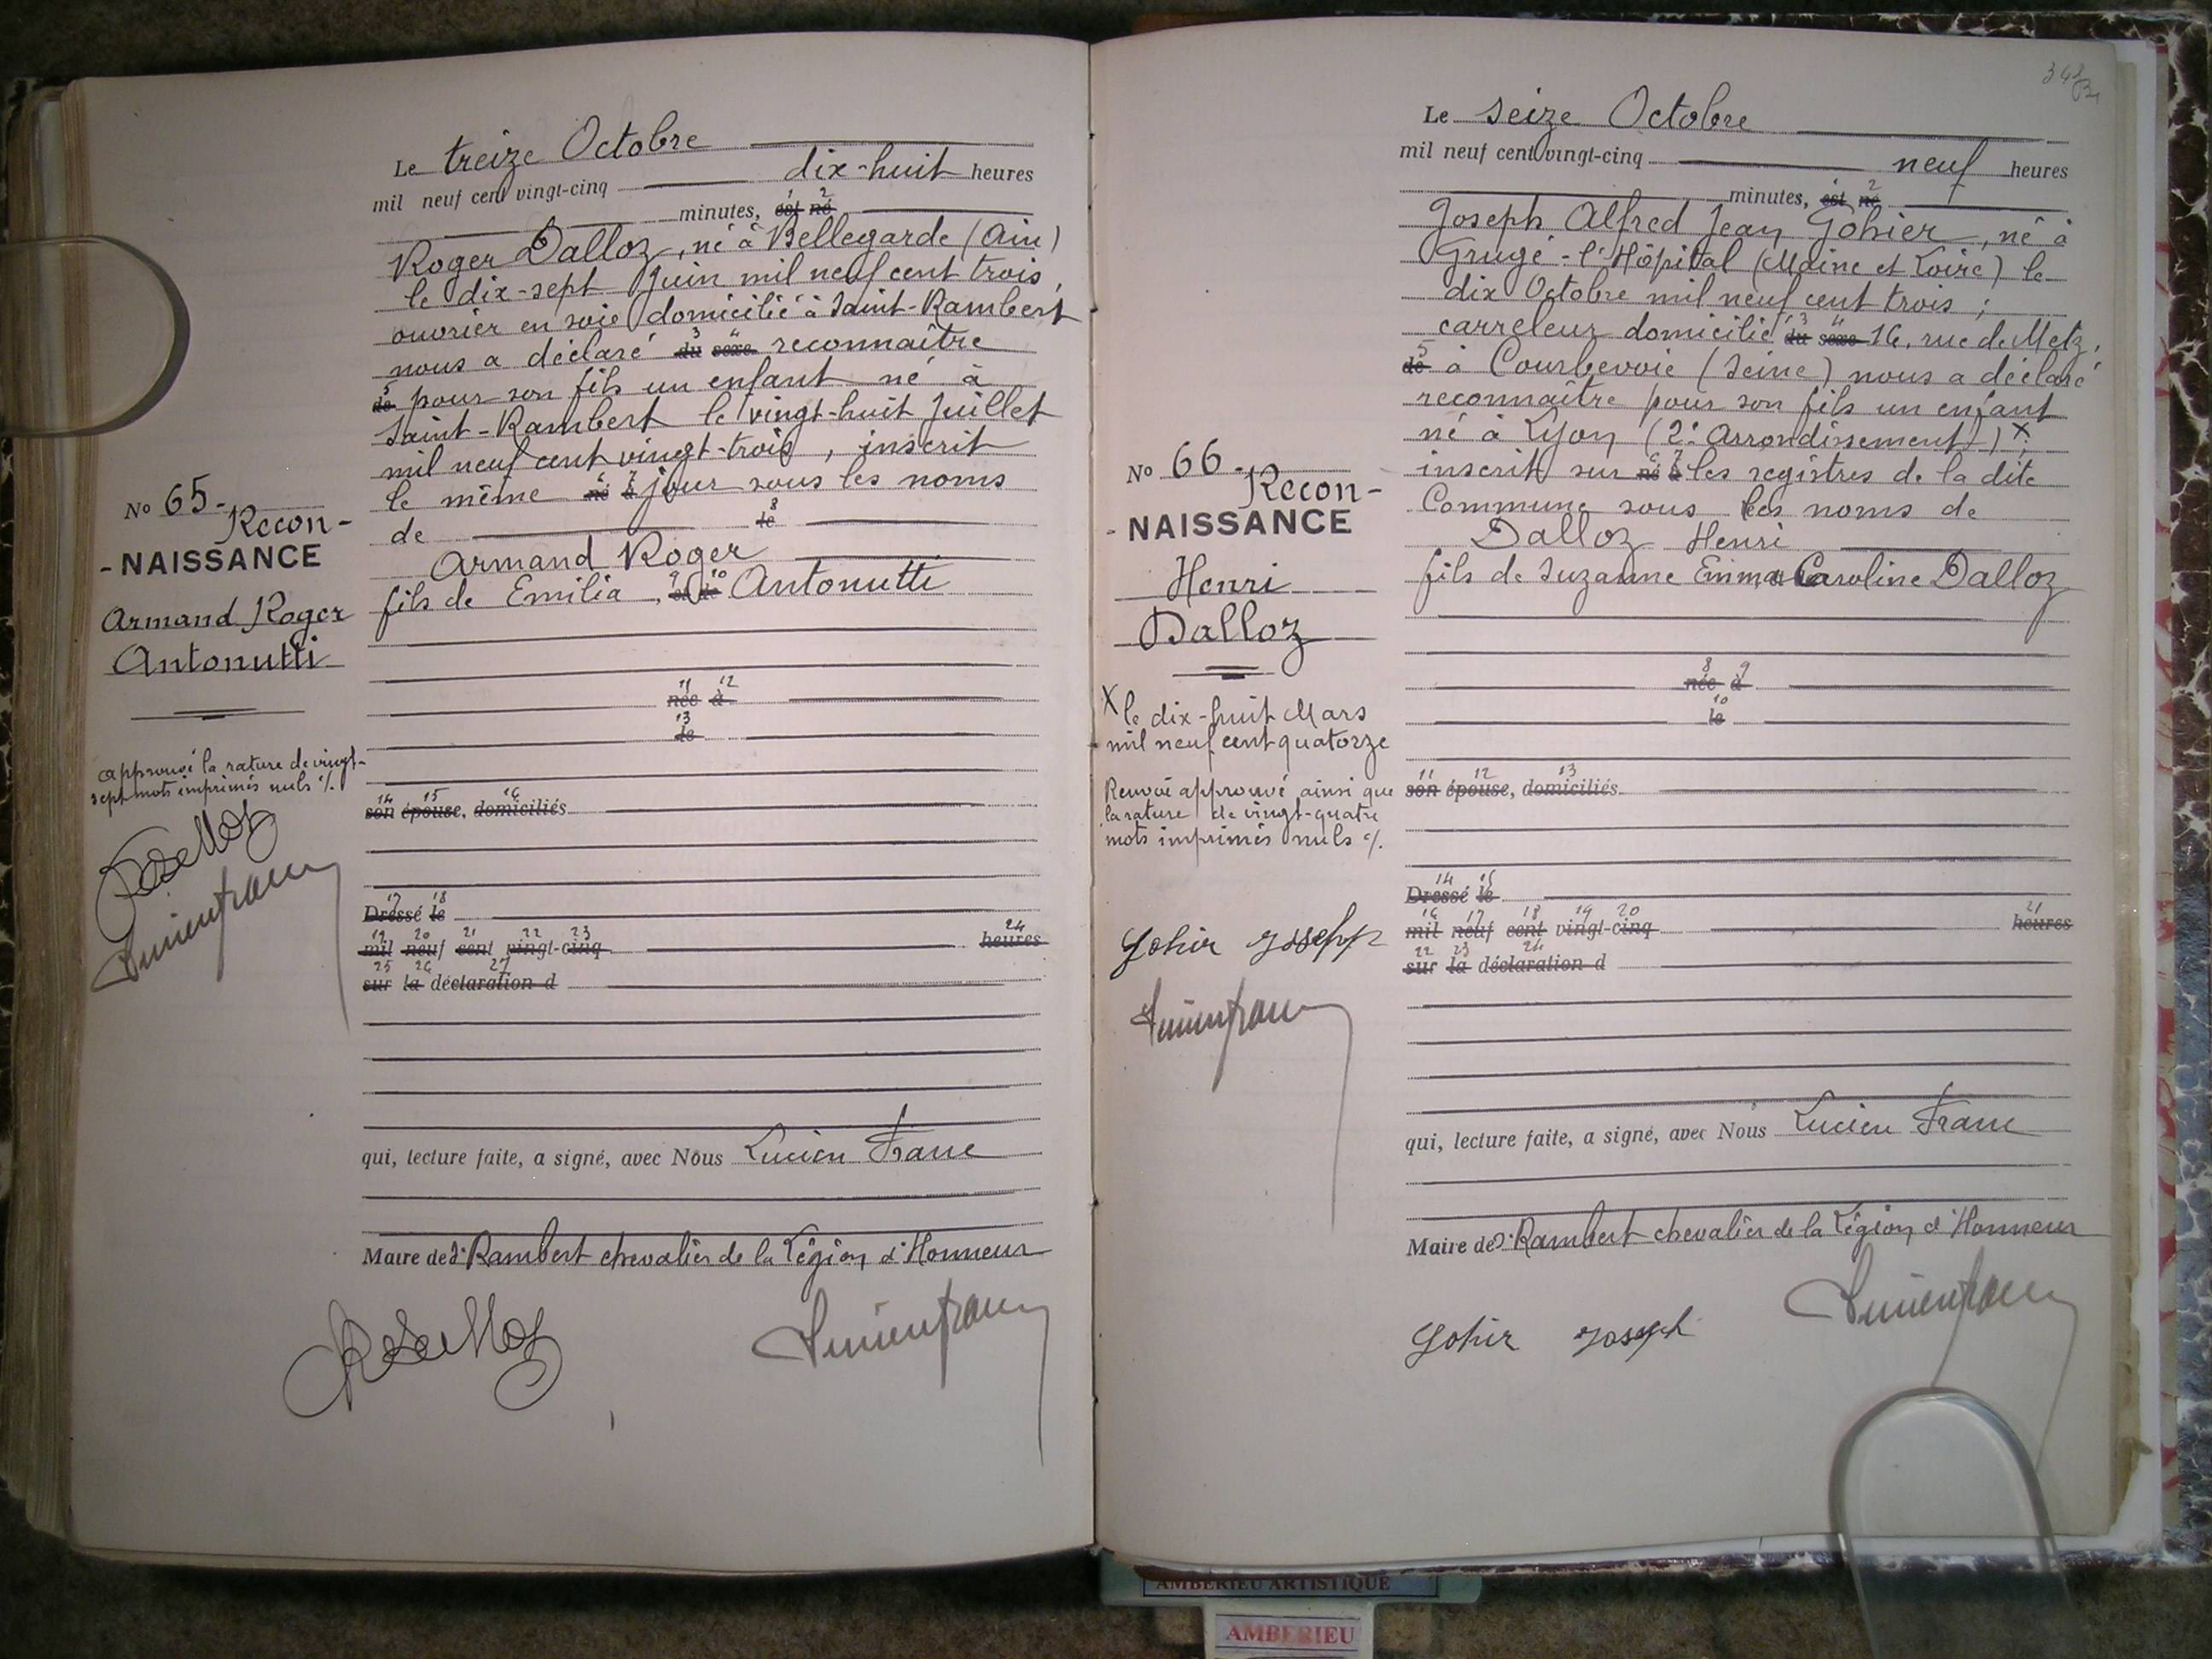 Le treize Octobre
mil neuf cent vingt-cinq dix-huit heures
minutes, 1 est 2 né
Roger Dalloz, né à Bellegarde (Ain)
le dix-sept Juin mil neuf cent trois,
ouvrier en soie domicilié à Saint-Rambert
nous a déclaré 3 du 4 sexe reconnaître
5 de pour son fils un enfant né à
Saint-Rambert le vingt-huit Juillet
mil neuf cent vingt-trois, inscrit
le même 6 né 7 à jour sous les noms
de 8 le
Armand Roger
fils de Emilia, 9 et 10 de Antonutti
11 née 12 à
13 le
14 son 15 épouse, 16 domiciliés
17 Dressé 18 le
19 mil 20 neuf 21 cent 22 vingt-23 cinq 24 heures
25 sur 26 la 27 déclaration d
qui, lecture faite, a signé, avec Nous Lucien Franc
Maire de St Rambert chevalier de la Légion d'Honneur
No 65-
Recon-
-NAISSANCE
Armand Roger
Antonutti
approuvé la rature de vingt-
sept mots imprimés nuls ./.
348
Le seize Octobre
mil neuf cent vingt-cinq neuf heures
minutes, 1 est 2 né
Joseph Alfred Jean Gohier, né à
Grugé-l'Hôpital (Maine et Loire) le
dix Octobre mil neuf cent trois;
carreleur domicilié 3 du 4 sexe 16, rue de Metz,
5 de à Courbevoie (Seine) nous a déclaré
reconnaître pour son fils un enfant
né à Lyon (2e Arrondissement) X;
inscrit sur 6 né 7 à les registres de la dite
Commune sous les noms de
Dalloz Henri
fils de Suzanne Emma Caroline Dalloz
8 née 9 à
10 le
11 son 12 épouse, 13 domiciliés
14 Dressé 15 le
16 mil 17 neuf 18 cent 19 vingt-20 cinq 21 heures
22 sur 23 la 24 déclaration d
qui, lecture faite, a signé, avec Nous Lucien Franc
Maire de St Rambert chevalier de la Légion d'Honneur
Gohir Joseph
No 66-
Recon-
-NAISSANCE
Henri
Dalloz
X le dix-huit Mars
mil neuf cent quatorze
Renvoi approuvé ainsi que
la rature de vingt-quatre
mots imprimés nuls ./.
Gohir Joseph
AMBERIEU ARTISTIQUE
AMBERIEU